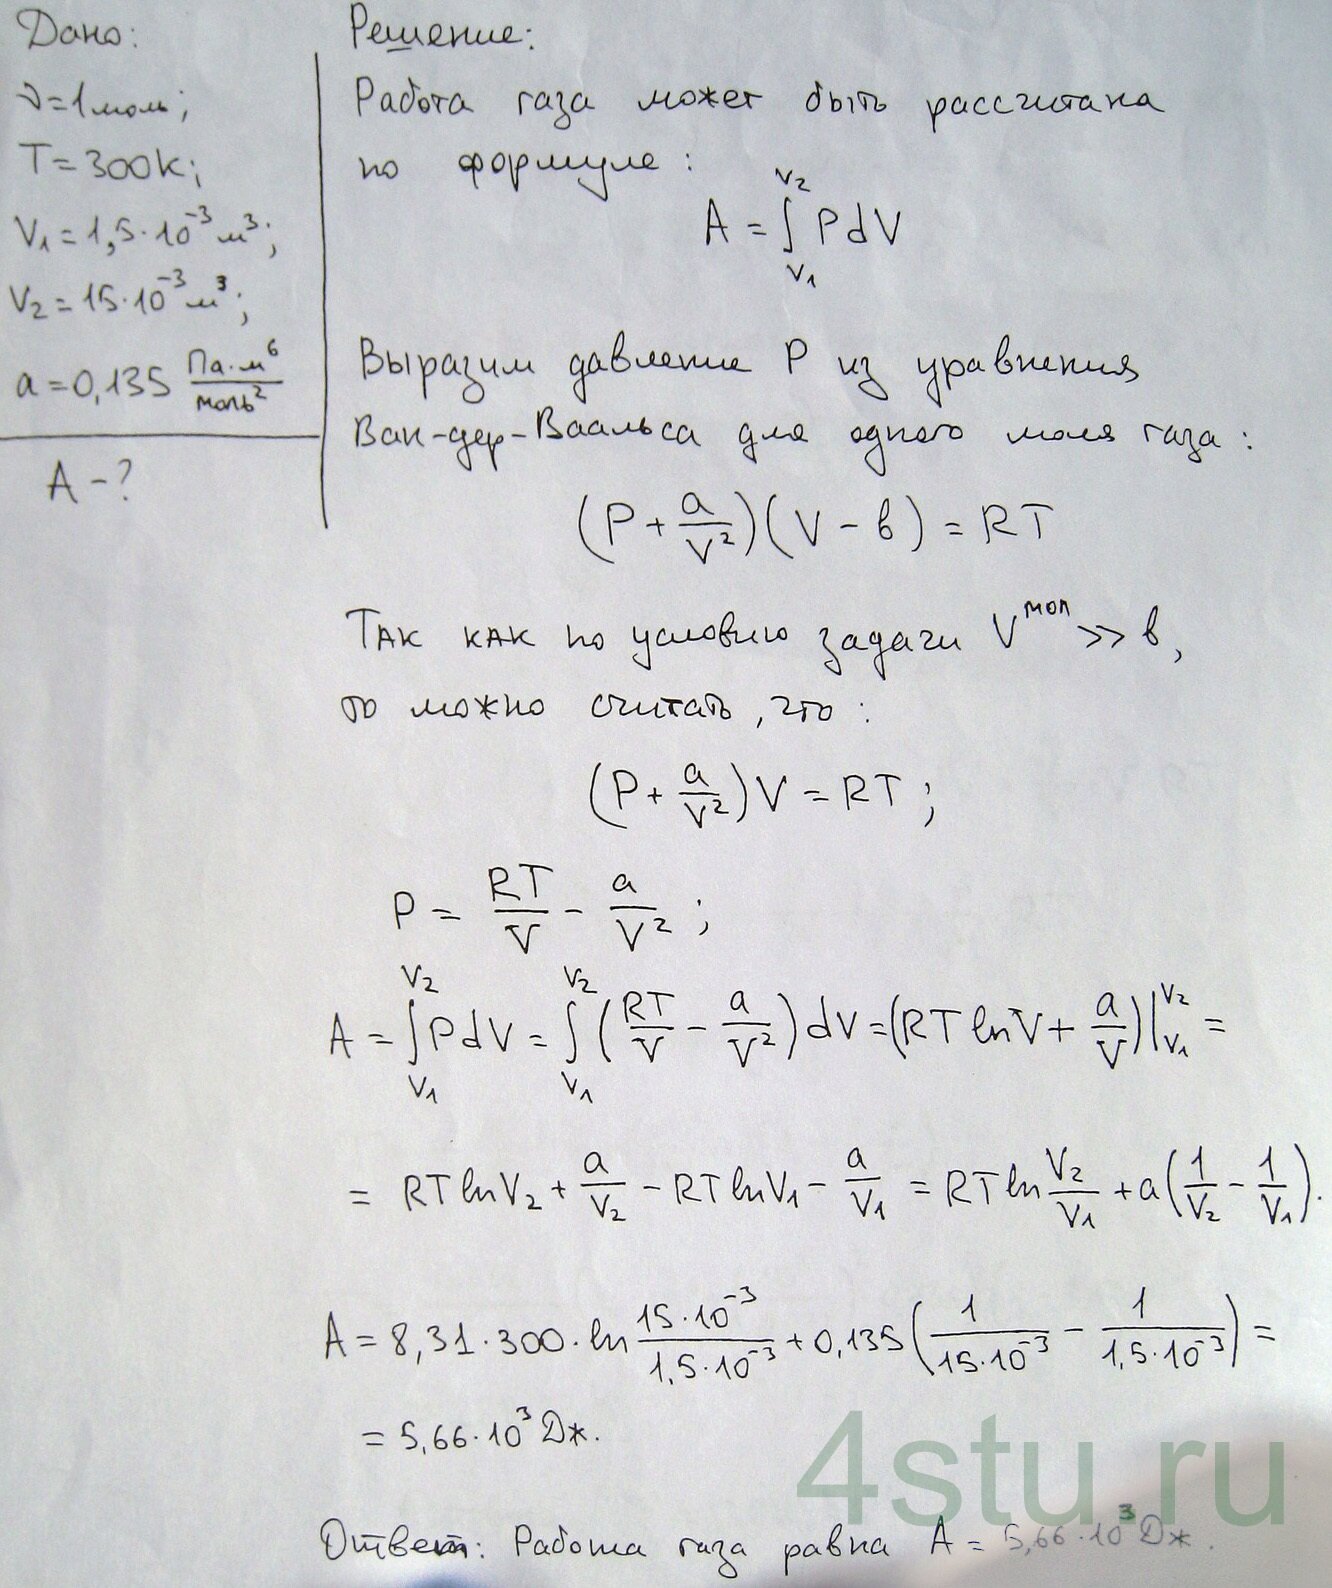 Дано:
ν=1моль;
T=300К;
V₁=1,5·10⁻³м³;
V₂=15·10⁻³м³;
a=0,135 Па·м⁶/моль²
A-?
Решение:
Работа газа может быть рассчитана
по формуле:
A = ∫_{V₁}^{V₂} PdV
Выразим давление P из уравнения
Ван-дер-Ваальса для одного моля газа:
(P + a/V²)(V - в) = RT
Так как по условию задачи V^{мол} >> в,
то можно считать, что:
(P + a/V²)V = RT;
P = RT/V - a/V²;
A = ∫_{V₁}^{V₂} PdV = ∫_{V₁}^{V₂} (RT/V - a/V²)dV = (RT lnV + a/V)|_{V₁}^{V₂} =
= RT lnV₂ + a/V₂ - RT lnV₁ - a/V₁ = RT ln V₂/V₁ + a(1/V₂ - 1/V₁).
A = 8,31·300·ln 15·10⁻³/1,5·10⁻³ + 0,135(1/15·10⁻³ - 1/1,5·10⁻³) =
= 5,66·10³ Дж.
4stu.ru
Ответ: Работа газа равна A = 5,66·10³ Дж.